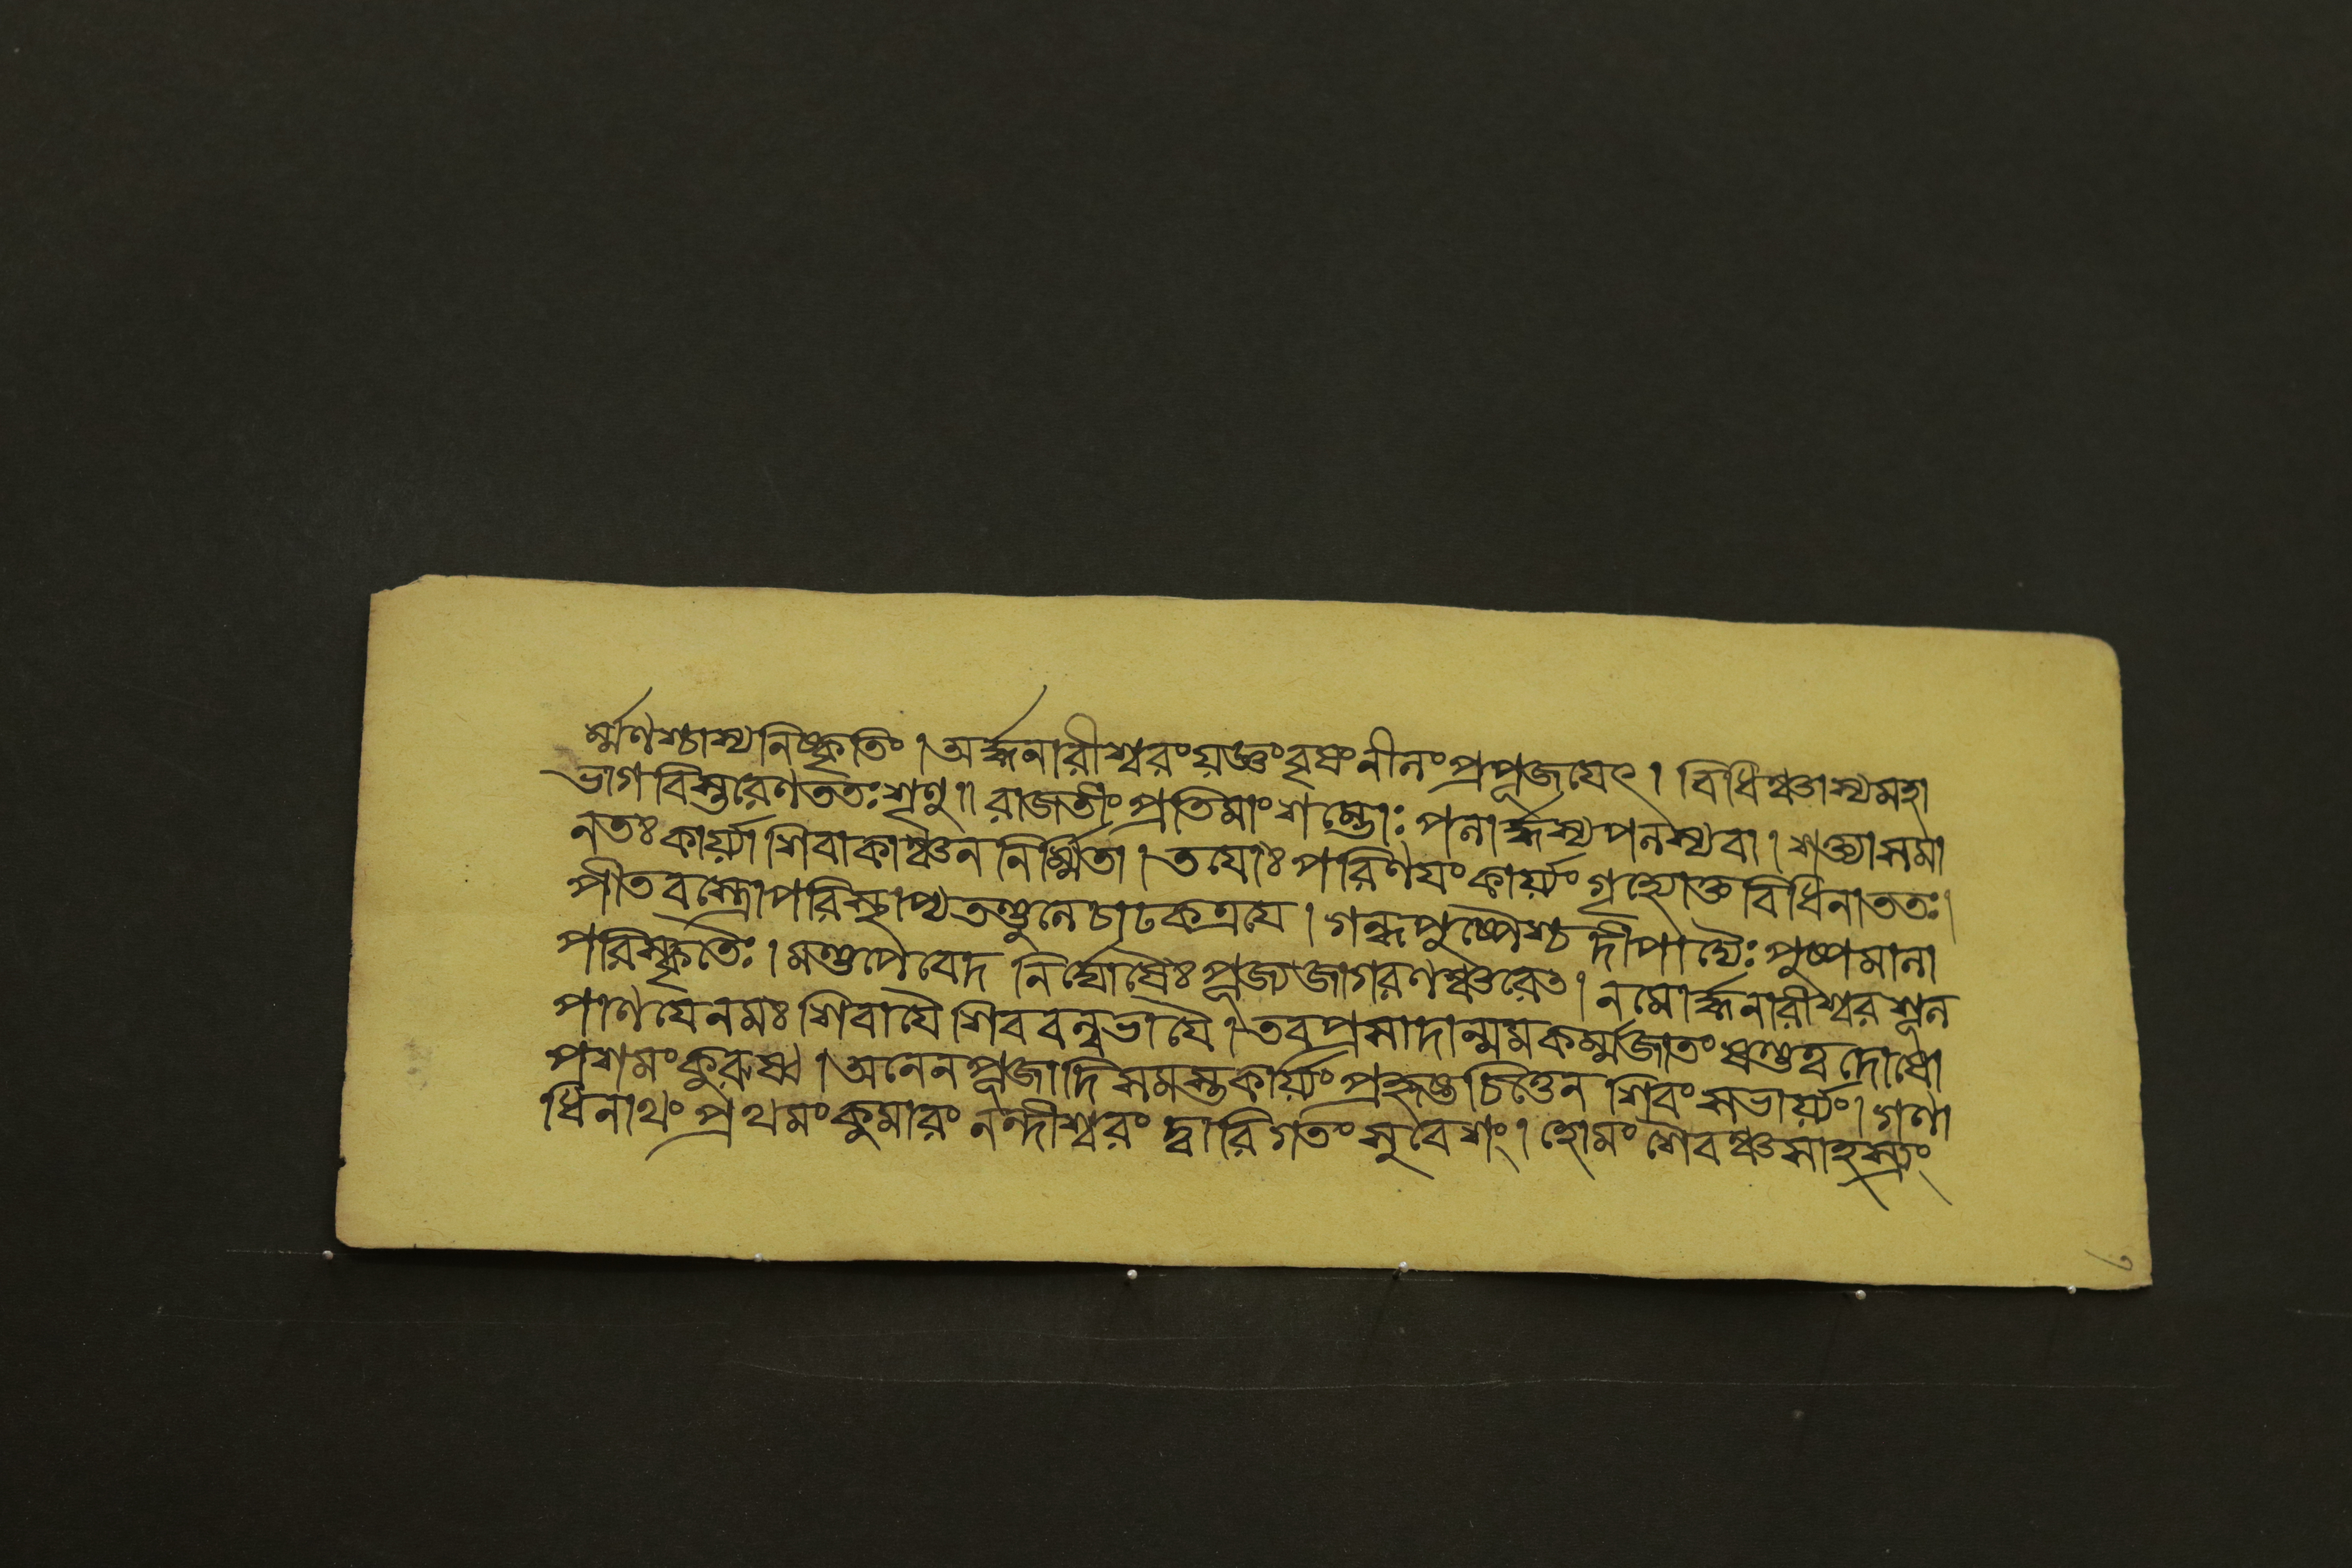 র্ম্মণশ্চাস্য নিষ্কৃতিং। অর্দ্ধনারীশ্বরং যজ্ঞং বৃষং নীলং প্রপূজয়েৎ। বিধিঞ্চাস্য মহা
ভাগ বিস্তরেণ ততঃ শৃণু॥ রাজতীং প্রতিমাং শম্ভোঃ পলার্দ্ধস্য পলস্য বা। শক্ত্যা সমা
নতঃ কার্য্যা শিবা কাঞ্চন নির্ম্মিতা। তয়োঃ পরিণয়ং কার্য্যং গৃহ্যোক্ত বিধিনা ততঃ।
পীতবস্ত্রোপরি স্থাপ্য তণ্ডুলে চাঢকত্রয়ে। গন্ধপুষ্পৈশ্চ দীপাদ্যৈঃ পুষ্পমালা
পরিষ্কৃতিঃ। মণ্ডপে বেদ নির্ঘোষৈঃ পূজ্য জাগরণঞ্চরেৎ। নমোর্দ্ধনারীশ্বর শূল
পাণয়ে নমঃ শিবায়ৈ শিববল্লভায়ৈ। তব প্রসাদান্মম কর্ম্মজাতং ষণ্ডত্ব দোষো
পশমং কুরুষ্ব। অনেন পূজাদি সমস্তকার্য্যং প্রহৃষ্টচিত্তেন শিবং সভার্য্যং। গণা
ধিনাথং প্রথমং কুমারং নন্দীশ্বরং দ্বারিগতং সুবেশং। হোমং শৈবঞ্চ সাহস্রং
৩